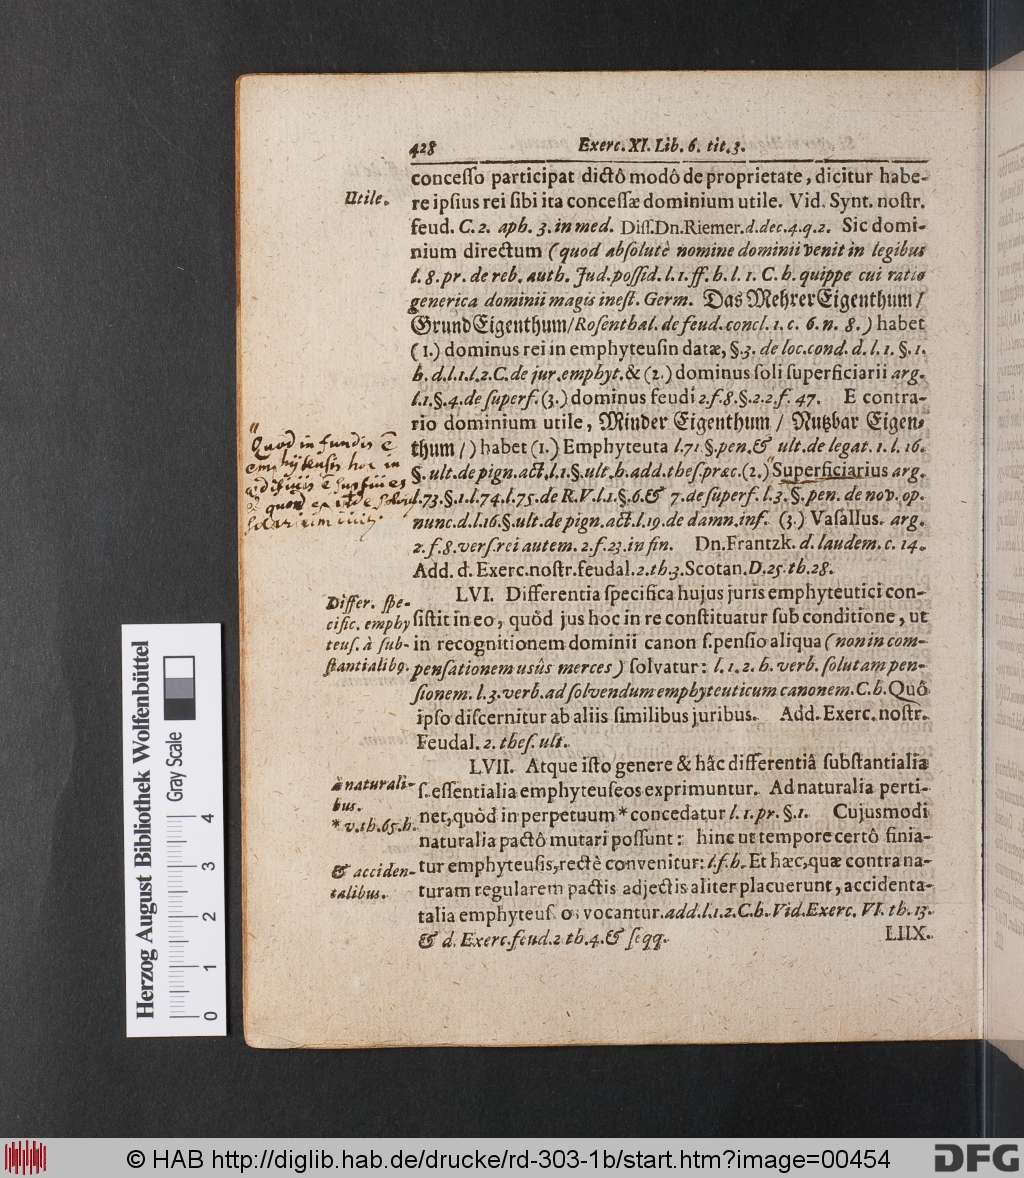 428 Exerc. XI. Lib. 6. tit. 3.
conceſſo participat dictô modô de proprietate, dicitur habe-
Utile.
re ipſius rei ſibi ita conceſſæ dominium utile. Vid. Synt. noſtr.
feud. C. 2. aph. 3. in med. Diſſ. Dn. Riemer. d. dec. 4. q. 2. Sic domi-
nium directum (quod abſolutè nomine dominii venit in legibus
l. 8. pr. de reb. auth. Jud. poſſid. l. 1. ff. h. l. 1. C. h. quippe cui ratio
generica dominii magis ineſt. Germ. Das Mehrer Eigenthum /
Grund Eigenthum / Roſenthal. de feud. concl. 1. c. 6. n. 8. ) habet
(1.) dominus rei in emphyteuſin datæ, §. 3. de loc. cond. d. l. 1. §. 1.
h. d. l. 1. l. 2. C. de jur. emphyt. & (2.) dominus ſoli ſuperficiarii arg.
l. 1. §. 4. de ſuperf. (3.) dominus feudi 2. f. 8. §. 2. 2. f. 47. E contra-
rio dominium utile, Minder Eigenthum / Nutzbar Eigen-
thum /) habet (1.) Emphyteuta l. 71. §. pen. & ult. de legat. 1. l. 16.
§. ult. de pign. act. l. 1. §. ult. h. add. theſ. præc. (2.) Superficiarius arg.
l. 73. §. 1. l. 74. l. 75. de R. V. l. 1. §. 6. & 7. de ſuperf. l. 3. §. pen. de nov. op.
nunc. d. l. 16. §. ult. de pign. act. l. 19. de damn. inf. (3.) Vaſallus. arg.
2. f. 8. verſ. rei autem. 2. f. 23. in fin. Dn. Frantzk. d. laudem. c. 14.
Add. d. Exerc. noſtr. feudal. 2. th. 3. Scotan. D. 25. th. 28.
Quod in fundis
hoc in
quod
LVI. Differentia ſpecifica hujus juris emphyteutici con-
Differ. ſpe-
cific. emphy
teuſ. à ſub-
ſtantialibq.
ſiſtit in eo, quòd jus hoc in re conſtituatur ſub conditione, ut
in recognitionem dominii canon ſ. penſio aliqua (non in com-
penſationem usûs merces) ſolvatur: l. 1. 2. h. verb. ſolutam pen-
ſionem. l. 3. verb. ad ſolvendum emphyteuticum canonem. C. h. Quô
ipſo diſcernitur ab aliis ſimilibus juribus. Add. Exerc. noſtr.
Feudal. 2. theſ. ult.
LVII. Atque iſto genere & hâc differentiâ ſubſtantialia
à naturali-
bus.
* v. th. 65. h.
ſ. eſſentialia emphyteuſeos exprimuntur. Ad naturalia perti-
net, quòd in perpetuum * concedatur l. 1. pr. §. 1. Cujusmodi
naturalia pactô mutari poſſunt: hinc ut tempore certô finia-
& acciden-
talibus.
tur emphyteuſis, rectè convenitur: l. f. h. Et hæc, quæ contra na-
turam regularem pactis adjectis aliter placuerunt, accidenta-
talia emphyteuſ os vocantur. add. l. 1. 2. C. h. Vid. Exerc. VI. th. 13.
& d. Exerc. feud. 2 th. 4. & ſeqq.
LIIX.
Herzog August Bibliothek Wolfenbüttel
Gray Scale
0 1 2 3 4
© HAB http://diglib.hab.de/drucke/rd-303-1b/start.htm?image=00454
DFG